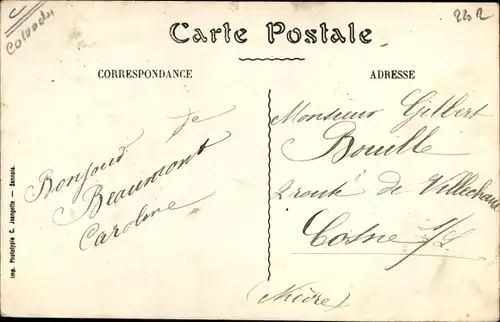 Calvados
Carte Postale
CORRESPONDANCE
ADRESSE
Bonjour de
Beaumont
Caroline
Monsieur Gilbert
Bouille
2 route de Villechaud
Cosne s/L
(Nièvre)
Imp. Phototypie C. Jeangette — Sannois.